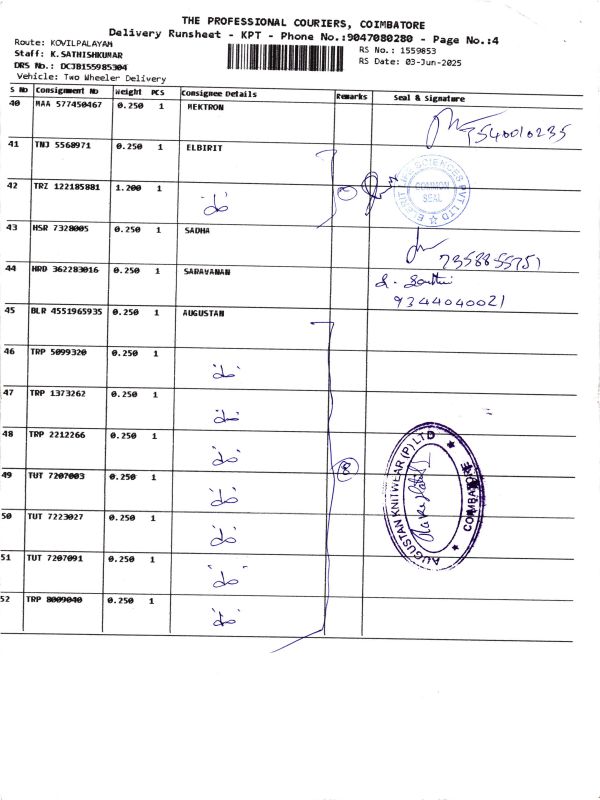 THE PROFESSIONAL COURIERS, COIMBATORE
Delivery Runsheet - KPT - Phone No.:9047080280 - Page No.:4
Route: KOVILPALAYAM
Staff: K.SATHISHKUMAR
DRS No.: DCJB155985304
Vehicle: Two Wheeler Delivery
RS No.: 1559853
RS Date: 03-Jun-2025
S No Consignment No Weight PCS Consignee Details Remarks Seal & Signature
40 MAA 577450467 0.250 1 MEKTRON 9540010235
41 TNJ 5568971 0.250 1 ELBIRIT
42 TRZ 122185881 1.200 1 "do"
SCIENCES PVT LTD
COMMON SEAL
43 HSR 7328005 0.250 1 SADHA 7358855751
44 HRD 362283016 0.250 1 SARAVANAN
9344040021
45 BLR 4551965935 0.250 1 AUGUSTAN
46 TRP 5099320 0.250 1 "do"
47 TRP 1373262 0.250 1 "do"
48 TRP 2212266 0.250 1 "do"
49 TUT 7207003 0.250 1 "do" 8
50 TUT 7223027 0.250 1 "do"
51 TUT 7207091 0.250 1 "do"
52 TRP 8009040 0.250 1 "do"
AUGUSTAN KNITWEAR (P) LTD
COIMBATORE